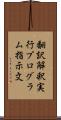 翻訳解釈実
行プログラ
ム指示文